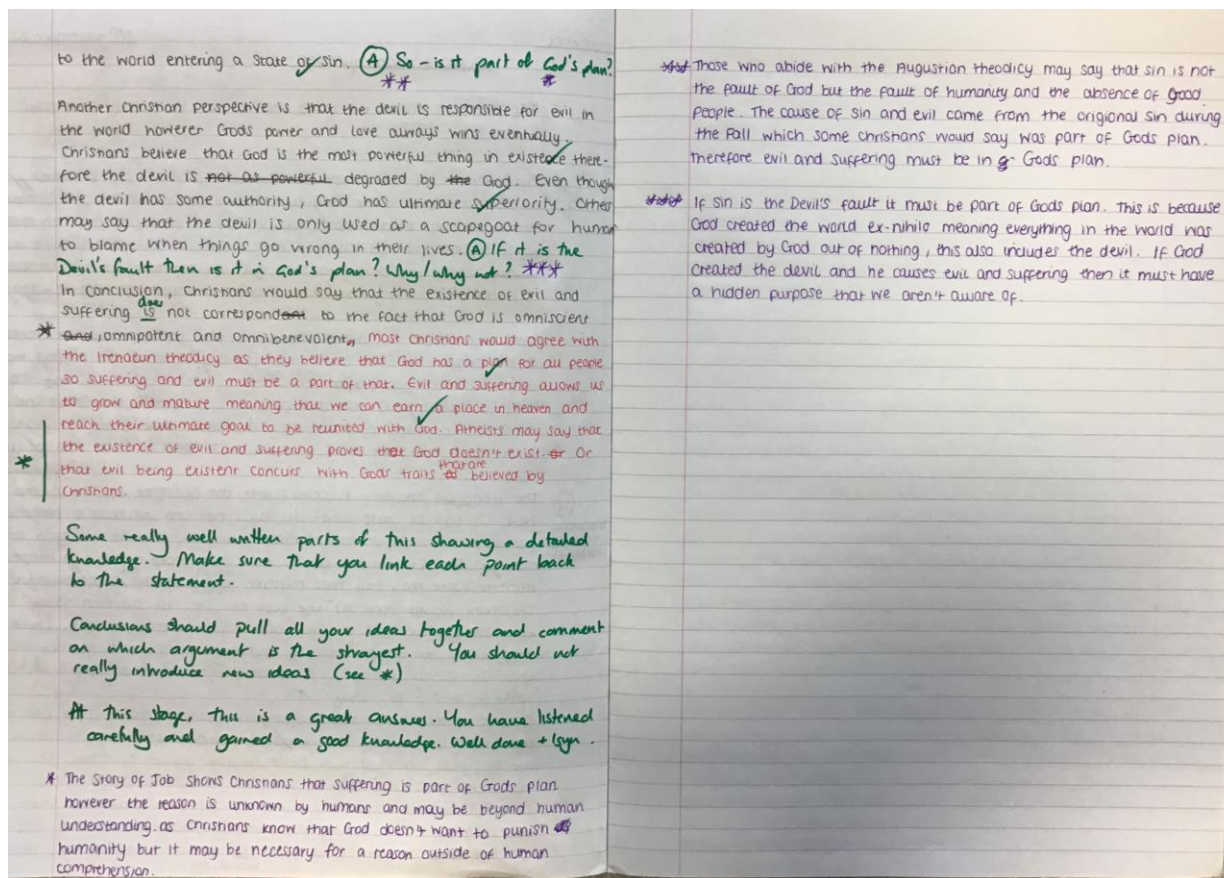 to the world entering a state of sin. (A) So - is it part of God's plan?
** *
Another christian perspective is that the devil is responsible for evil in
the world however Gods power and love always wins eventually.
Christians believe that God is the most powerful thing in existece there-
fore the devil is not as powerful degraded by the God. Even though
the devil has some authority, God has ultimate superiority. Others
may say that the devil is only used as a scapegoat for human
to blame when things go wrong in their lives. (A) If it is the
Devil's fault then is it in God's plan? Why/why not? ***
In conclusion, Christians would say that the existence of evil and
does
suffering is not correspondent to the fact that God is omniscient
* and, omnipotent and omnibenevolent, most christians would agree with
the Irenaeun theodicy as they believe that God has a plan for all people
so suffering and evil must be a part of that. Evil and suffering allows us
to grow and mature meaning that we can earn a place in heaven and
reach their ultimate goal to be reunited with God. Atheists may say that
the existence of evil and suffering proves that God doesn't exist. or Or
that are
* that evil being existent concurs with Gods traits believed by
Christians.
Some really well written parts of this showing a detailed
knowledge. Make sure that you link each point back
to the statement.
Conclusions should pull all your ideas together and comment
on which argument is the strongest. You should not
really introduce new ideas (see *)
At this stage, this is a great answer. You have listened
carefully and gained a good knowledge. Well done +
* The story of Job shows Christians that suffering is part of Gods plan
however the reason is unknown by humans and may be beyond human
understanding. as Christians know that God doesn't want to punish
humanity but it may be necessary for a reason outside of human
comprehension.
Those who abide with the Augustian theodicy may say that sin is not
the fault of God but the fault of humanity and the absence of good
people. The cause of sin and evil came from the origional sin during
the Fall which some christians would say was part of Gods plan.
therefore evil and suffering must be in Gods plan.
If sin is the Devil's fault it must be part of Gods plan. This is because
God created the world ex-nihilo meaning everything in the world was
created by God out of nothing, this also includes the devil. If God
created the devil and he causes evil and suffering then it must have
a hidden purpose that we aren't aware of.